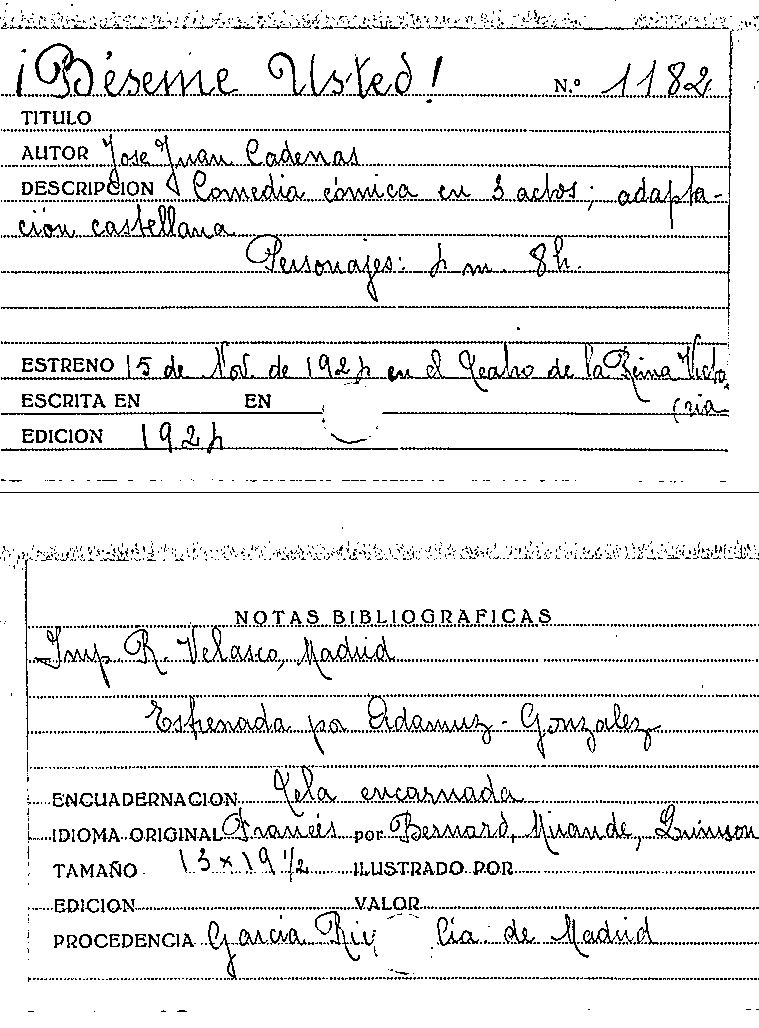 ¡Béseme Usted! N.º 1182
TITULO
AUTOR Jose Juan Cadenas
DESCRIPCION Comedia cómica en 3 actos; adapta-
ción castellana
Personajes: 4 m. 8h.
ESTRENO 15 de Nov. de 1924 en el Teatro de la Reina Victo
(ria
ESCRITA EN EN
EDICION 1924
NOTAS BIBLIOGRAFICAS
Imp R. Velasco, Madrid
Estrenada por Adamuz - Gonzalez
ENCUADERNACION Tela encarnada
IDIOMA ORIGINAL Francés por Bernard, Mirande, Quinson
TAMAÑO 13 x 19 1/2 ILUSTRADO POR
EDICION VALOR
PROCEDENCIA García Cía. de Madrid